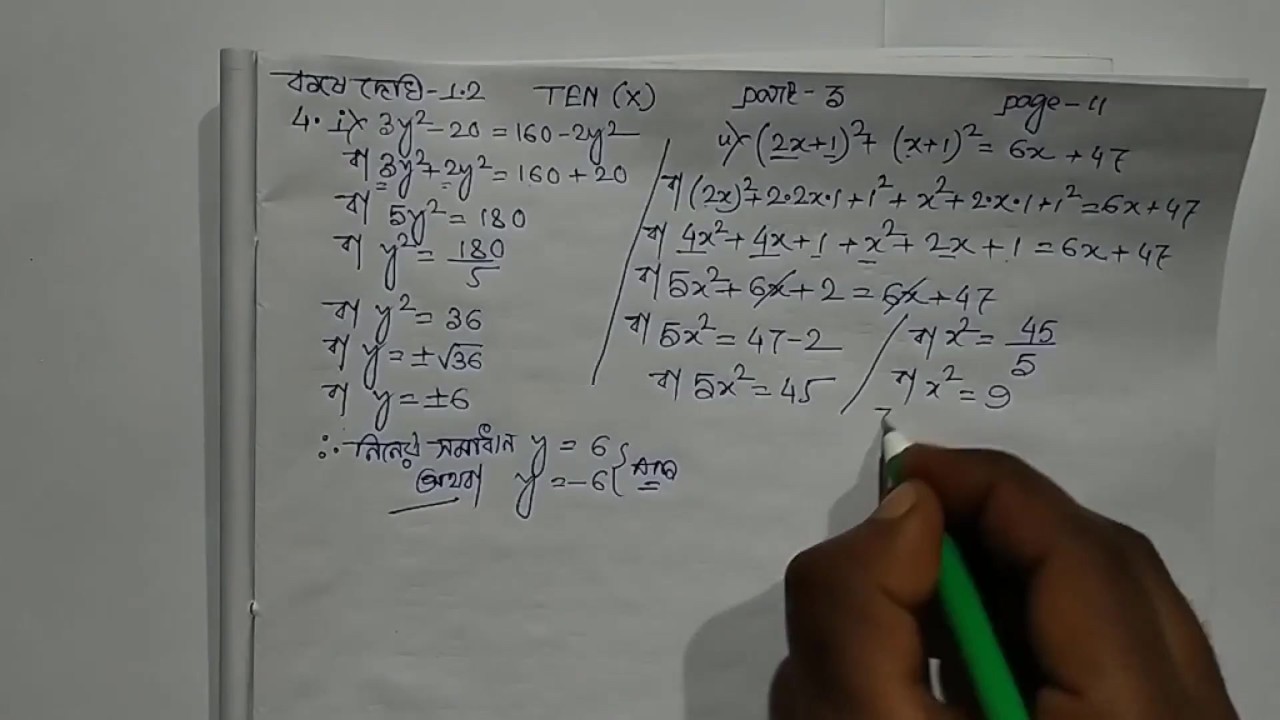 কষে দেখি-1.2 TEN (X) part-3 page-4
4. i) 3y²-20=160-2y²
বা 3y²+2y²=160+20
বা 5y²=180
বা y²=180/5
বা y²=36
বা y=±√36
বা y=±6
∴ নির্ণেয় সমাধান y=6
অথবা y=-6 } Ans
ii) (2x+1)²+(x+1)²=6x+47
বা (2x)²+2·2x·1+1²+x²+2·x·1+1²=6x+47
বা 4x²+4x+1+x²+2x+1=6x+47
বা 5x²+6x+2=6x+47
বা 5x²=47-2
বা 5x²=45
বা x²=45/5
বা x²=9